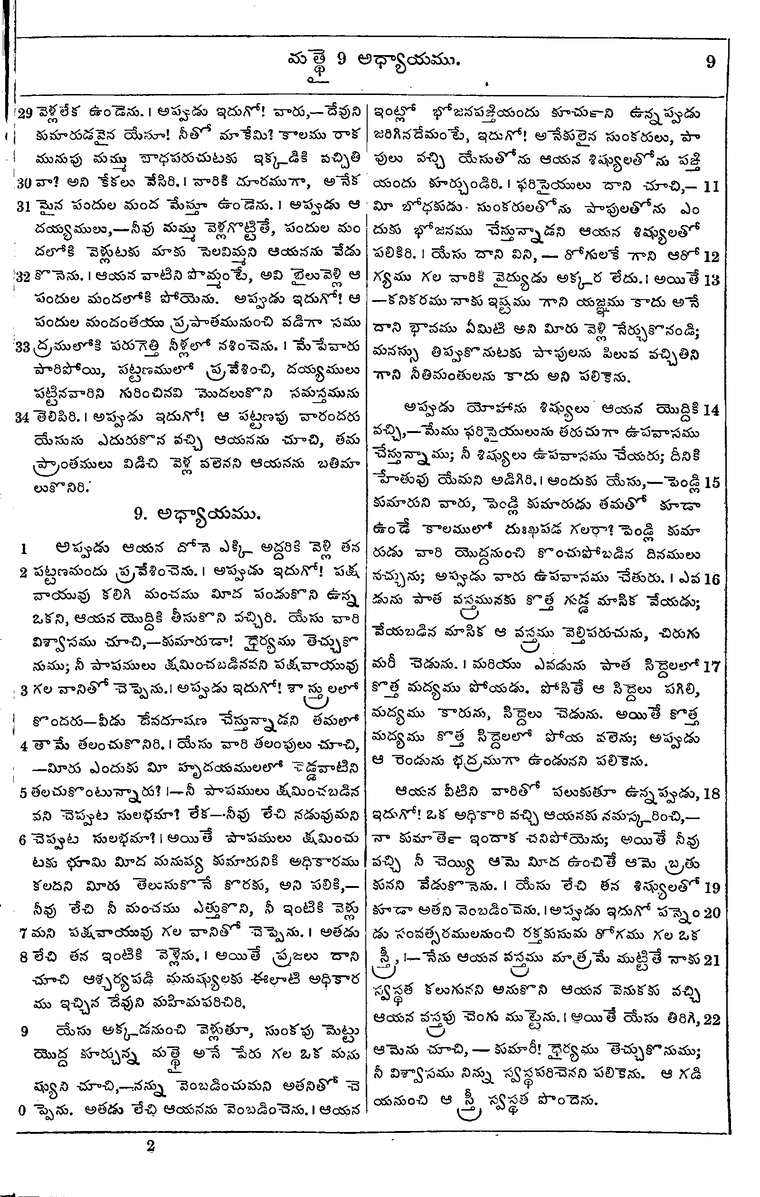 మత్తై 9 అధ్యాయము. 9
29 వెళ్లలేక ఉండెను. । అప్పుడు ఇదుగో! వారు,—దేవుని
కుమారుడవైన యేసూ! నీతో మాకేమి? కాలము రాక
మునుపు మమ్ము బాధపరచుటకు ఇక్కడికి వచ్చితి
30 వా? అని కేకలు వేసిరి. । వారికి దూరముగా, అనేక
31 మైన పందుల మంద మేస్తూ ఉండెను. । అప్పుడు ఆ
దయ్యములు,—నీవు మమ్ము వెళ్లగొట్టితే, పందుల మం
దలోకి వెళ్లుటకు మాకు సెలవిమ్మని ఆయనను వేడు
32 కొనెను. । ఆయన వాటిని పొమ్మంటే, అవి బైలువెళ్లి ఆ
పందుల మందలోకి పోయెను. అప్పుడు ఇదుగో! ఆ
పందుల మందంతయు ప్రపాతమునుంచి వడిగా సము
33 ద్రములోకి పరుగెత్తి నీళ్లలో నశించెను. । మేపేవారు
పారిపోయి, పట్టణములో ప్రవేశించి, దయ్యములు
పట్టినవారిని గురించినవి మొదలుకొని సమస్తమును
34 తెలిపిరి. । అప్పుడు ఇదుగో! ఆ పట్టణపు వారందరు
యేసును ఎదురుకొన వచ్చి ఆయనను చూచి, తమ
ప్రాంతములు విడిచి వెళ్ల వలెనని ఆయనను బతిమా
లుకొనిరి.
9. అధ్యాయము.
1 అప్పుడు ఆయన దోనె ఎక్కి అద్దరికి వెళ్లి తన
2 పట్టణమందు ప్రవేశించెను. । అప్పుడు ఇదుగో! పక్ష
వాయువు కలిగి మంచము మీద పండుకొని ఉన్న
ఒకని, ఆయన యొద్దికి తీసుకొని వచ్చిరి. యేసు వారి
విశ్వాసము చూచి,—కుమారుడా! ధైర్యము తెచ్చుకొ
నుము; నీ పాపములు క్షమించబడినవని పక్షవాయువు
3 గల వానితో చెప్పెను. । అప్పుడు ఇదుగో! శాస్త్రులలో
కొందరు—వీడు దేవదూషణ చేస్తున్నాడని తమలో
4 తామే తలంచుకొనిరి. । యేసు వారి తలంపులు చూచి,
—మీరు ఎందుకు మీ హృదయములలో చెడ్డవాటిని
5 తలచుకొంటున్నారు? ।—నీ పాపములు క్షమించబడిన
వని చెప్పుట సులభమా? లేక—నీవు లేచి నడువుమని
6 చెప్పుట సులభమా? । అయితే పాపములు క్షమించు
టకు భూమి మీద మనుష్య కుమారునికి అధికారము
కలదని మీరు తెలుసుకొనే కొరకు, అని పలికి,—
నీవు లేచి నీ మంచము ఎత్తుకొని, నీ ఇంటికి వెళ్లు
7 మని పక్షవాయువు గల వానితో చెప్పెను. । అతడు
8 లేచి తన ఇంటికి వెళ్లెను. । అయితే ప్రజలు దాని
చూచి ఆశ్చర్యపడి మనుష్యులకు ఈలాటి అధికార
ము ఇచ్చిన దేవుని మహిమపరిచిరి.
9 యేసు అక్కడనుంచి వెళ్లుతూ, సుంకపు మెట్టు
యొద్ద కూర్చున్న మత్తై అనే పేరు గల ఒక మను
ష్యుని చూచి,—నన్ను వెంబడించుమని అతనితో చె
0 ప్పెను. అతడు లేచి ఆయనను వెంబడించెను. । ఆయన
ఇంట్లో భోజనపఙ్తియందు కూచుౕని ఉన్నప్పుడు
జరిగినదేమంటే, ఇదుగో! అనేకులైన సుంకరులు, పా
పులు వచ్చి యేసుతోను ఆయన శిష్యులతోను పఙ్తి
యందు కూర్చుండిరి. । ఫరిసైయులు దాని చూచి,— 11
మీ బోధకుడు సుంకరులతోను పాపులతోను ఎం
దుకు భోజనము చేస్తున్నాడని ఆయన శిష్యులతో
పలికిరి. । యేసు దాని విని, — రోగులకే గాని ఆరో 12
గ్యము గల వారికి వైద్యుడు అక్కర లేదు. । అయితే 13
—కనికరము నాకు ఇష్టము గాని యజ్ఞము కాదు అనే
దాని భావము ఏమిటి అని మీరు వెళ్లి నేర్చుకొనండి;
మనస్సు తిప్పుకొనుటకు పాపులను పిలువ వచ్చితిని
గాని నీతిమంతులను కాదు అని పలికెను.
అప్పుడు యోహాను శిష్యులు ఆయన యొద్దికి 14
వచ్చి,—మేము ఫరిసైయులును తరుచుగా ఉపవాసము
చేస్తున్నాము; నీ శిష్యులు ఉపవాసము చేయరు; దీనికి
హేతువు యేమని అడిగిరి. । అందుకు యేసు,—పెండ్లి 15
కుమారుని వారు, పెండ్లి కుమారుడు తమతో కూడా
ఉండే కాలములో దుఃఖపడ గలరా? పెండ్లి కుమా
రుడు వారి యొద్దనుంచి కొంచుపోబడిన దినములు
వచ్చును; అప్పుడు వారు ఉపవాసము చేతురు. । ఎవ 16
డును పాత వస్త్రమునకు కొత్త గుడ్డ మాసిక వేయడు;
వేయబడిన మాసిక ఆ వస్త్రము వెల్తిపరుచును, చిరుగు
మరీ చెడును. । మరియు ఎవడును పాత సిద్దెలలో 17
కొత్త మద్యము పోయడు. పోసితే ఆ సిద్దెలు పగిలి,
మద్యము కారును, సిద్దెలు చెడును. అయితే కొత్త
మద్యము కొత్త సిద్దెలలో పోయ వలెను; అప్పుడు
ఆ రెండును భద్రముగా ఉండునని పలికెను.
ఆయన వీటిని వారితో పలుకుతూ ఉన్నప్పుడు, 18
ఇదుగో! ఒక అధికారి వచ్చి ఆయనకు నమస్కరించి,—
నా కుమాతెౕ ఇందాక చనిపోయెను; అయితే నీవు
వచ్చి నీ చెయ్యి ఆమె మీద ఉంచితే ఆమె బ్రతు
కునని వేడుకొనెను. । యేసు లేచి తన శిష్యులతో 19
కూడా అతని వెంబడించెను. । అప్పుడు ఇదుగో పన్నెం 20
డు సంవత్సరములనుంచి రక్తకుసుమ రోగము గల ఒక
స్త్రీ, ।—నేను ఆయన వస్త్రము మాత్రమే ముట్టితే నాకు 21
స్వస్థత కలుగునని అనుకొని ఆయన వెనుకకు వచ్చి
ఆయన వస్త్రపు చెంగు ముట్టెను. । అయితే యేసు తిరిగి, 22
ఆమెను చూచి, — కుమారీ! ధైర్యము తెచ్చుకొనుము;
నీ విశ్వాసము నిన్ను స్వస్థపరిచెనని పలికెను. ఆ గడి
యనుంచి ఆ స్త్రీ స్వస్థత పొందెను.
2